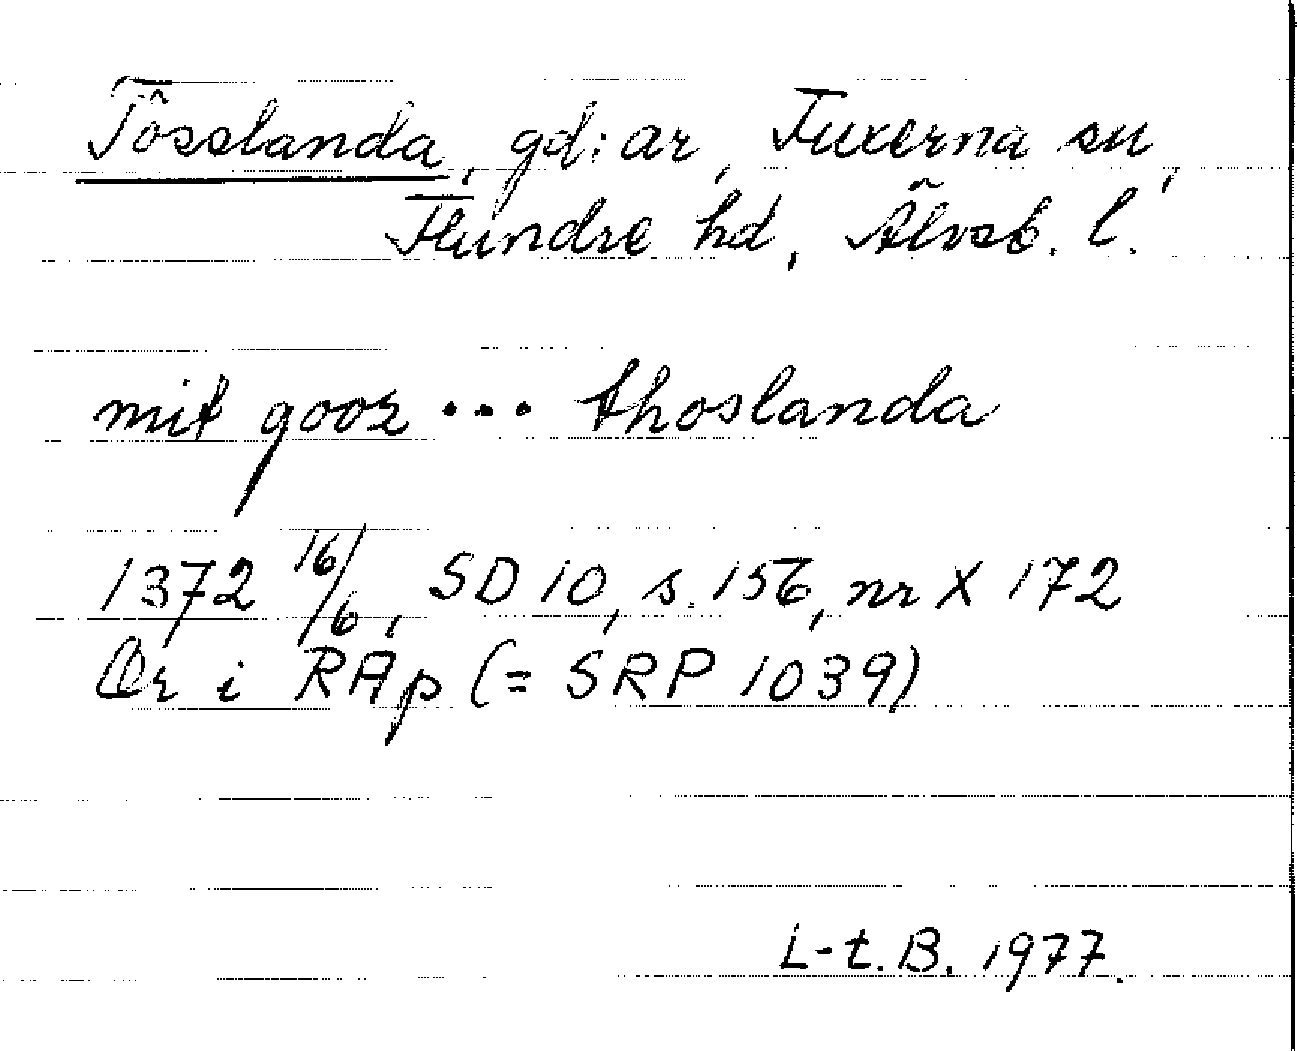 Tösslanda, gd:ar, Fuxerna sn,
Flundre hd, Älvsb. l.
mit gooz ... thoslanda
1372 16/6, SD 10, s. 156, nr X 172
Or i RAp (= SRP 1039)
L-t. B. 1977.